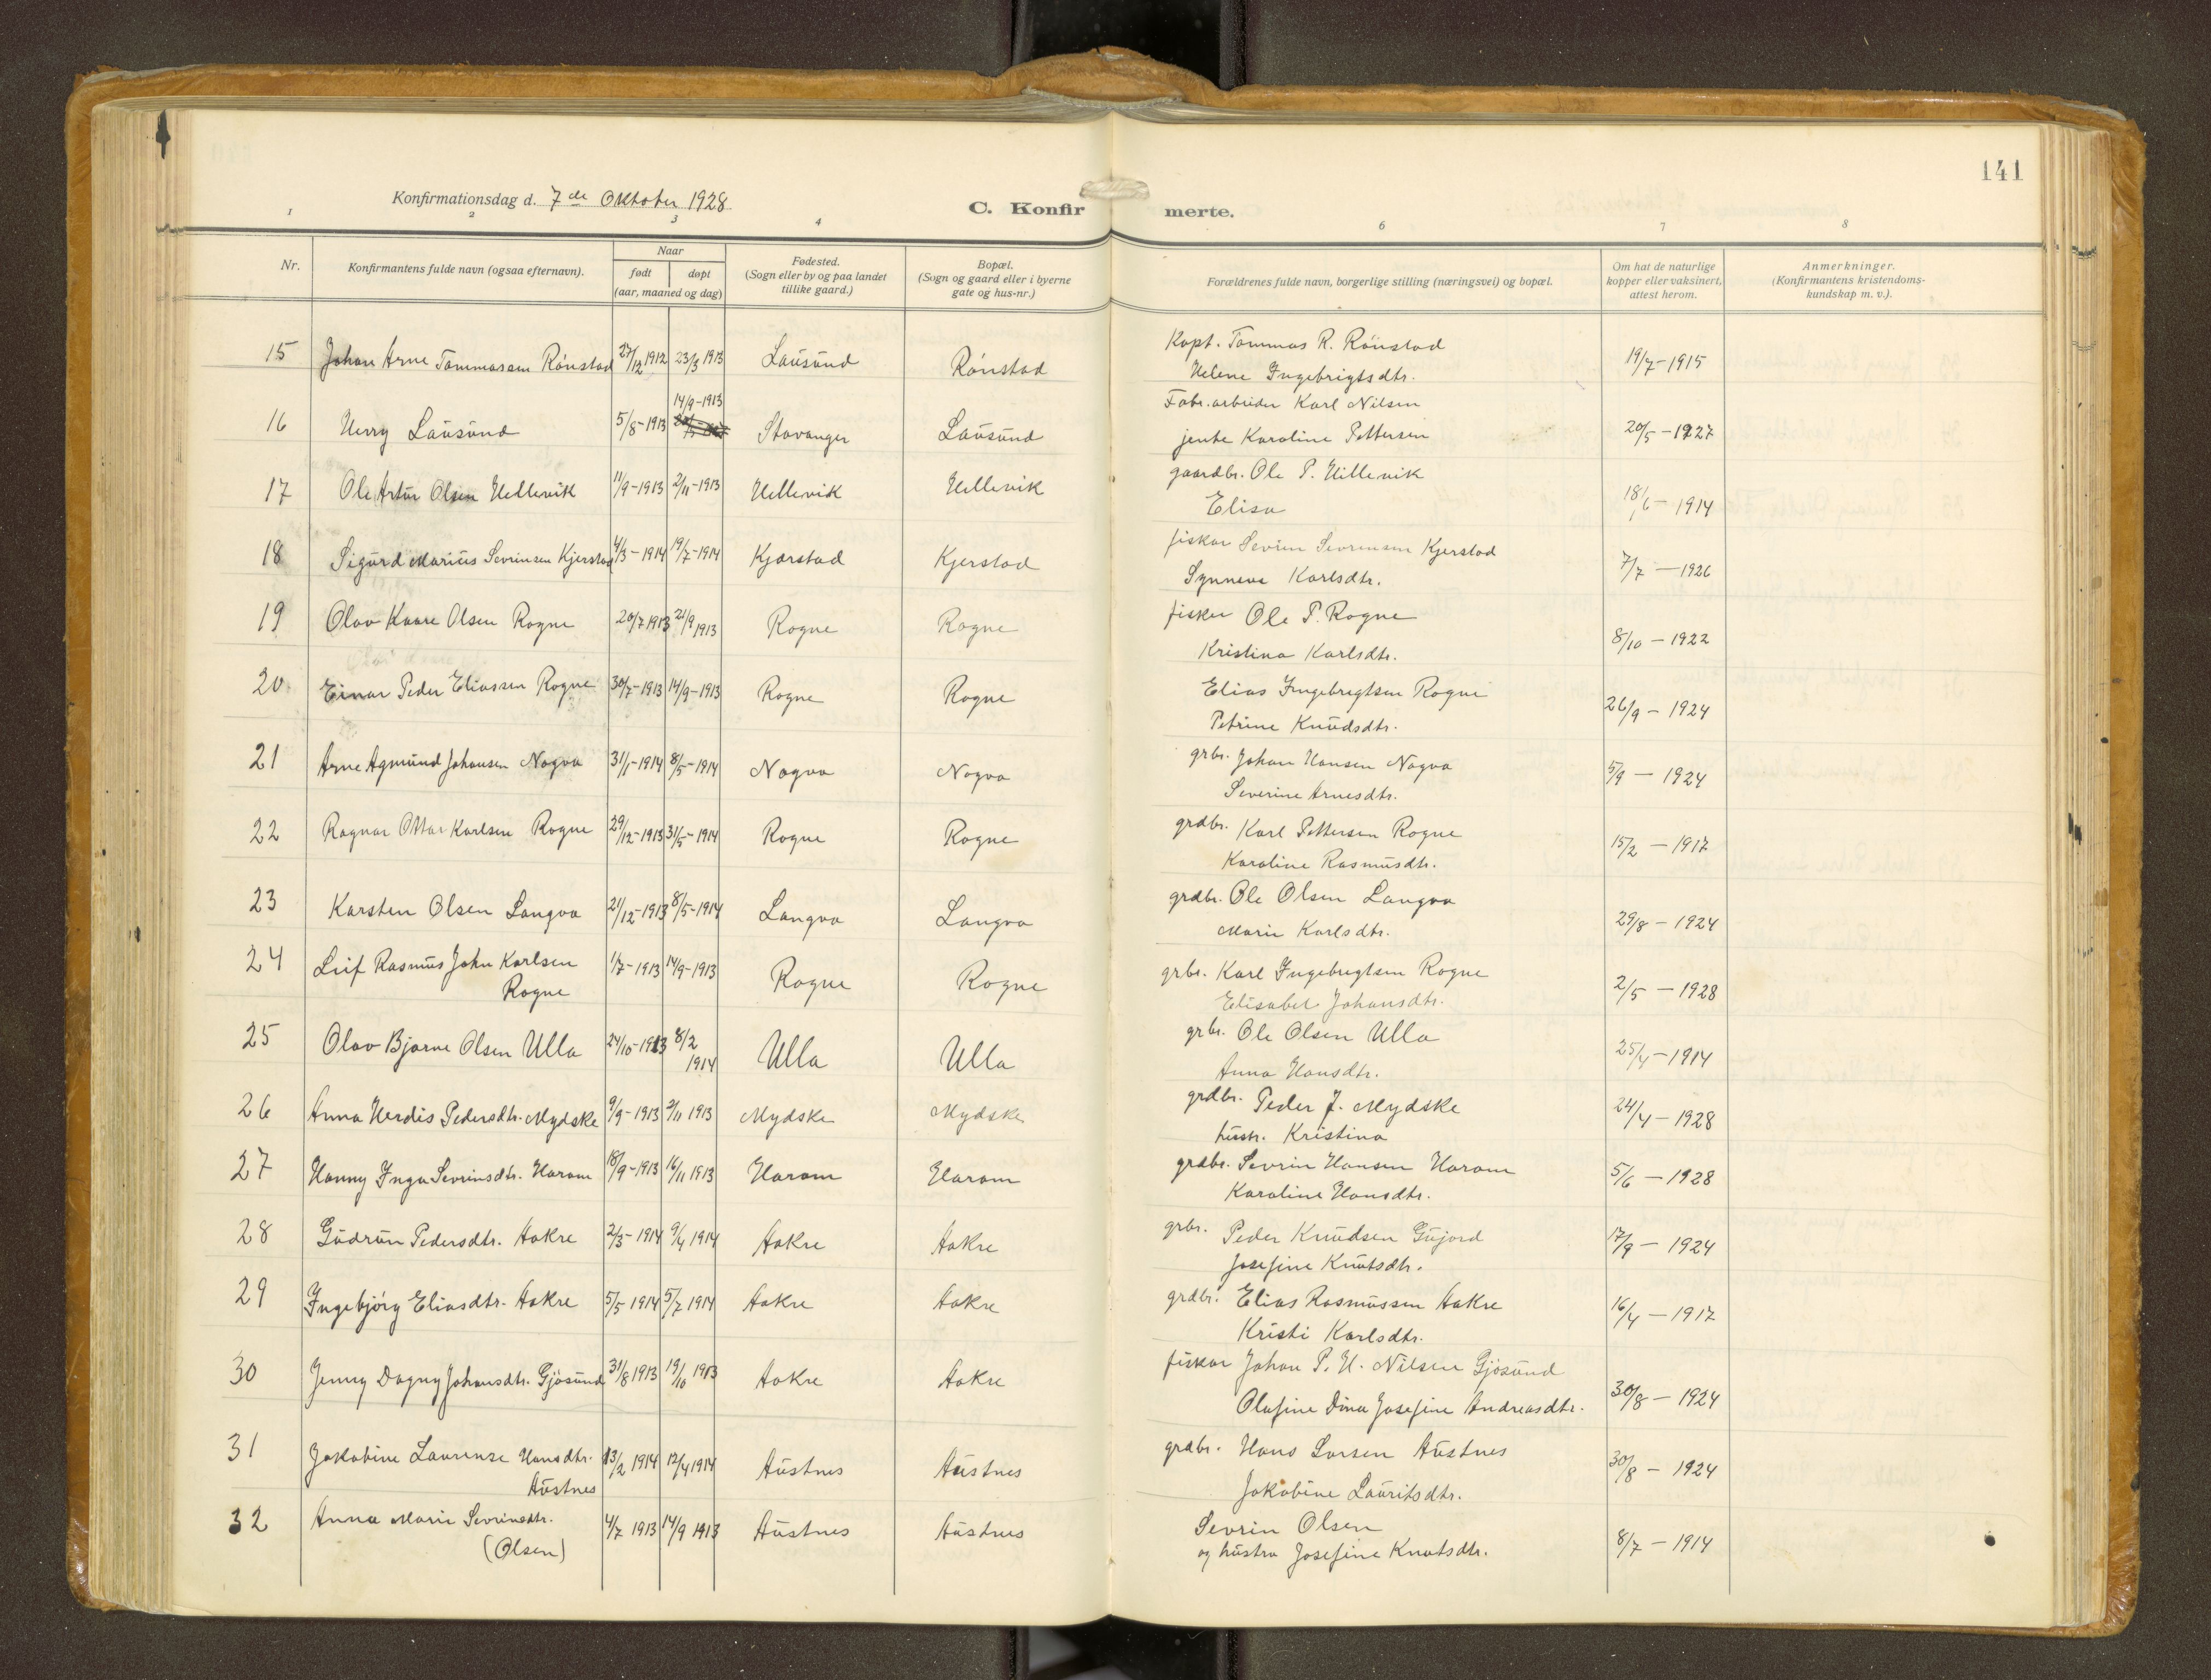 141
Konfirmationsdag d. 7de Oktober 1928
C. Konfirmerte.
1 2 3 4 6 7 8
Nr.
Konfirmantens fulde navn (ogsaa efternavn).
Naar
født døpt
(aar, maaned og dag)
Fødested.
(Sogn eller by og paa landet
tillike gaard.)
Bopæl.
(Sogn og gaard eller i byerne
gate og hus-nr.)
Forældrenes fulde navn, borgerlige stilling (næringsvei) og bopæl.
Om hat de naturlige
kopper eller vaksinert,
attest herom.
Anmerkninger.
(Konfirmantens kristendoms-
kundskap m. v.).
15 Johan Arne Tommassen Rönstad 27/12 1912 23/3 1913 Lausund Rönstad Kapt. Tommas R. Rönstad 19/7-1915
Helene Ingebrigtsdtr.
14/9-1913
16 Henry Lausund 5/8-1913 Stavanger Lausund Fabr.arbeider Karl Nilsen 20/5-1927
jente Karoline Pettersen
17 Ole Artur Olsen Hellevik 11/9-1913 2/11-1913 Hellevik Hellevik gaardbr. Ole P. Hillevik 18/6-1914
Elisa
18 Sigurd Marius Sevrinsen Kjerstad 4/3-1914 19/7-1914 Kjærstad Kjerstad fiskar Sevrin Sevrensen Kjerstad 7/7-1926
Synneva Karlsdtr.
19 Olav Kaare Olsen Rogne 20/7 1913 21/9 1913 Rogne Rogne fisker Ole P. Rogne 8/10-1922
Kristina Karlsdtr.
20 Einar Peder Eliassen Rogne 30/7-1913 14/9-1913 Rogne Rogne Elias Ingebregtsen Rogne 26/9-1924
Petrine Knudsdtr.
21 Arne Agmund Johansen Nogva 31/1-1914 8/5-1914 Nogva Nogva grbr. Johan Hansen Nogva 5/9-1924
Severine Arnesdtr.
22 Ragnar Ottar Karlsen Rogne 29/12-1913 31/5-1914 Rogne Rogne grdbr. Karl Pettersen Rogne 15/2-1917
Karoline Rasmusdtr.
23 Karsten Olsen Langva 21/12-1913 8/5-1914 Langva Langva grdbr. Ole Olsen Langva 29/8-1924
Marie Karlsdtr.
24 Leif Rasmus John Karlsen 1/7-1913 14/9-1913 Rogne Rogne grbr. Karl Ingebregtsen Rogne 2/5-1928
Rogne Elisabet Johansdtr.
25 Olav Bjarne Olsen Ulla 24/10-1913 8/2 1914 Ulla Ulla grbr. Ole Olsen Ulla 25/4-1914
Anna Hansdtr.
26 Anna Herdis Pedersdtr. Mydske 9/9-1913 9/11 1913 Mydske Mydske grdbr. Peder J. Mydske 24/4-1928
hustr. Kristina
27 Hanny Inga Sevrinsdtr. Haram 18/9-1913 16/11 1913 Haram Haram grdbr. Sevrin Hansen Haram 5/6-1928
Karoline Hansdtr.
28 Gudrun Pedersdtr. Aakre 2/3-1914 9/4 1914 Aakre Aakre grbr. Peder Knudsen Gujord 17/9-1924
Josefine Knutsdtr.
29 Ingebjörg Eliasdtr. Aakre 5/5 1914 5/7 1914 Aakre Aakre grdbr. Elias Rasmussen Aakre 16/4-1917
Kristi Karlsdtr.
30 Jenny Dagny Johansdtr. Gjösund 31/8 1913 19/10 1913 Aakre Aakre fiskar Johan P. H. Nilsen Gjösund 30/8-1924
Olufine Dina Josefine Andreasdtr.
31 Jakobine Laurense Hansdtr. 13/2 1914 12/4 1914 Austnes Austnes grdbr. Hans Larsen Austnes 30/8-1924
Austnes Jakobine Lauritsdtr.
32 Anna Marie Sevrinsdtr. 4/7 1913 14/9 1913 Austnes Austnes Sevrin Olsen 8/7-1914
(Olsen) og hustru Josefine Knutsdtr.